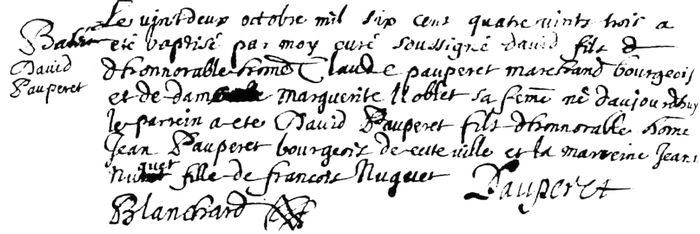 Le vint deux octobre mil six cens quatre vints trois a
Bateme
eté baptisé par moy curé soussigné david fils
David
Pauperet
d'honnorable home Claude pauperet marchand bourgeois
et de dam marguerite Noblet sa feme né daujourdhuy
le parrein a ete David Pauperet fils d'honnorable home
Jean Pauperet bourgeois de cette ville et la marreine Jeanne
Nuquet fille de francois Nuquet Pauperet
Blanchard